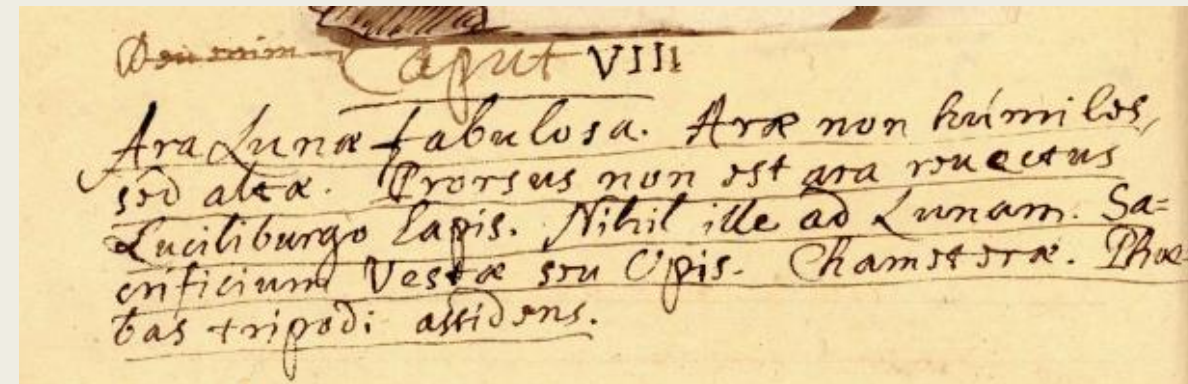 Caput VIII
Ara Lunæ fabulosa. Aræ non húmiles,
sed altæ. Prorsus non est ara reuectus
Luciliburgo lapis. Nihil ille ad Lunam. Sa=
crificium Vestæ seu Opis. Chamæteræ. Phœ-
bas tripodi assidens.